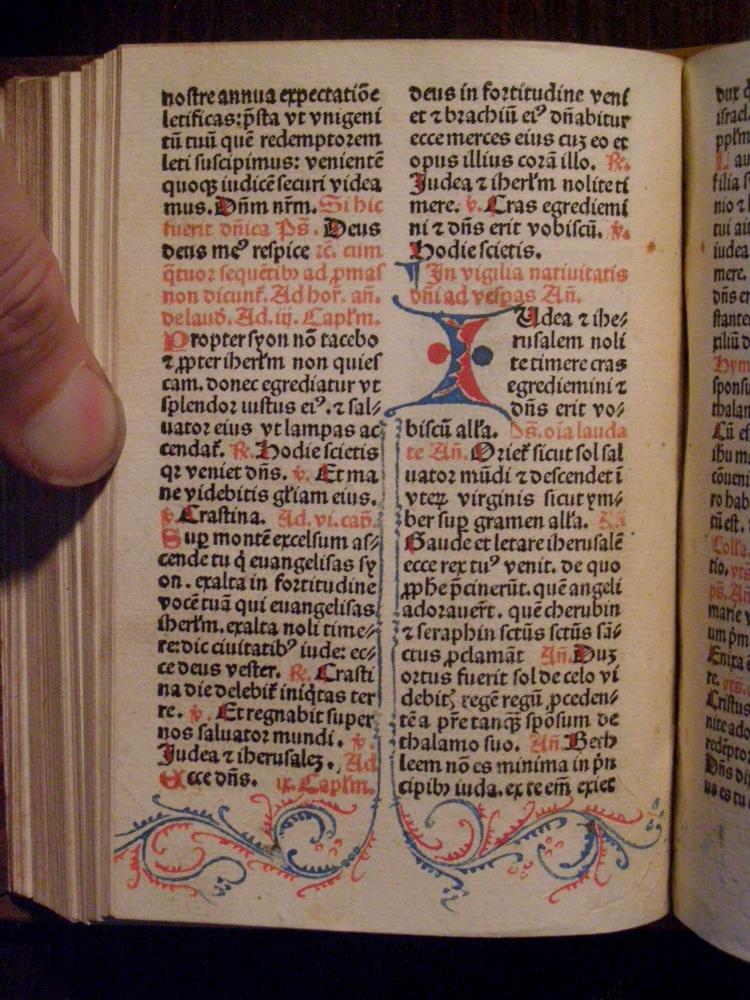 nostre annua expectatiōe
letificas: p̄sta vt vnigeni
tū tuū quē redemptorem
leti suscipimus: venientē
quoqꝫ iudicē securi videa
mus. Dn̄m nr̄m. Si hic
fuerit dn̄ica Ps̄. Deus
deus meꝰ respice ꝛc̄. cum
q̄tuor sequētibꝰ ad pͥmas
non dicunt᷒. Ad hor̄. an̄.
de laud̄. Ad .iij. Capłm.
Propter syon nō tacebo
⁊ ꝓpter iherłm non quies
cam. donec egrediatur vt
splendor iustus eiꝰ. ⁊ sal⸗
uator eius vt lampas ac
cendat᷒. ℟. Hodie scietis
qꝛ veniet dn̄s. v̄. Et ma
ne videbitis gl̄iam eius.
v̄ Crastina. Ad .vi. cap̄.
Suꝑ montē excelsum as⸗
cende tu q̇ euangelisas sy
on . exalta in fortitudine
vocē tuā qui euangelisas
iherłm. exalta noli time⸗
re: dic ciuitatibꝰ iude: ec⸗
ce deus vester. ℟. Crasti
na die delebit᷒ iniq̇tas ter
re. v̄. Et regnabit super
nos saluator mundi . v̄.
Judea ⁊ iherusaleꝫ. Ad
Ecce dn̄s. ix. Capłm.
deus in fortitudine veni
et ⁊ brachiū eiꝰ dn̄abitur
ecce merces eius cuꝫ eo et
opus illius corā illo. ℟.
Judea ⁊ iherłm nolite ti
mere. v̄. Cras egrediemi
ni ⁊ dn̄s erit vobiscū. v̄.
Hodie scietis.
¶ In vigilia natiuitatis
dn̄i ad vesꝑas An̄.
IUdea ⁊ ihe⸗
rusalem noli
te timere cras
egrediemini ⁊
dn̄s erit vo⸗
biscū alła. Ps̄. oīa lauda
te An̄. Oriet᷒ sicut sol sal
uator mūdi ⁊ descendet ī
vteꝝ virginis sicut ym⸗
ber suꝑ gramen alła. An̄
Gaude et letare iherusalē
ecce rex tuꝰ venit. de quo
ꝓph̄e p̄cinerūt. quē angeli
adorauer̄t. quē cherubin
⁊ seraphin sc̄tūs sc̄tūs sā⸗
ctus ꝓclamāt An̄. Duꝫ
ortus fuerit sol de celo vi
debitꝭ regē regū ꝓceden⸗
tē a pr̄e tanqꝫ spōsum de
thalamo suo. An̄ Beth
leem nō es minima in pͥn
cipibꝰ iuda. ex te em̄ exiet